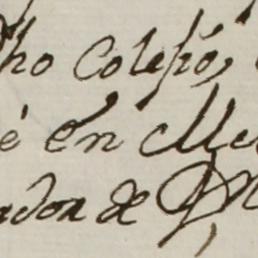 ho Colegio,
é en Me
ador de